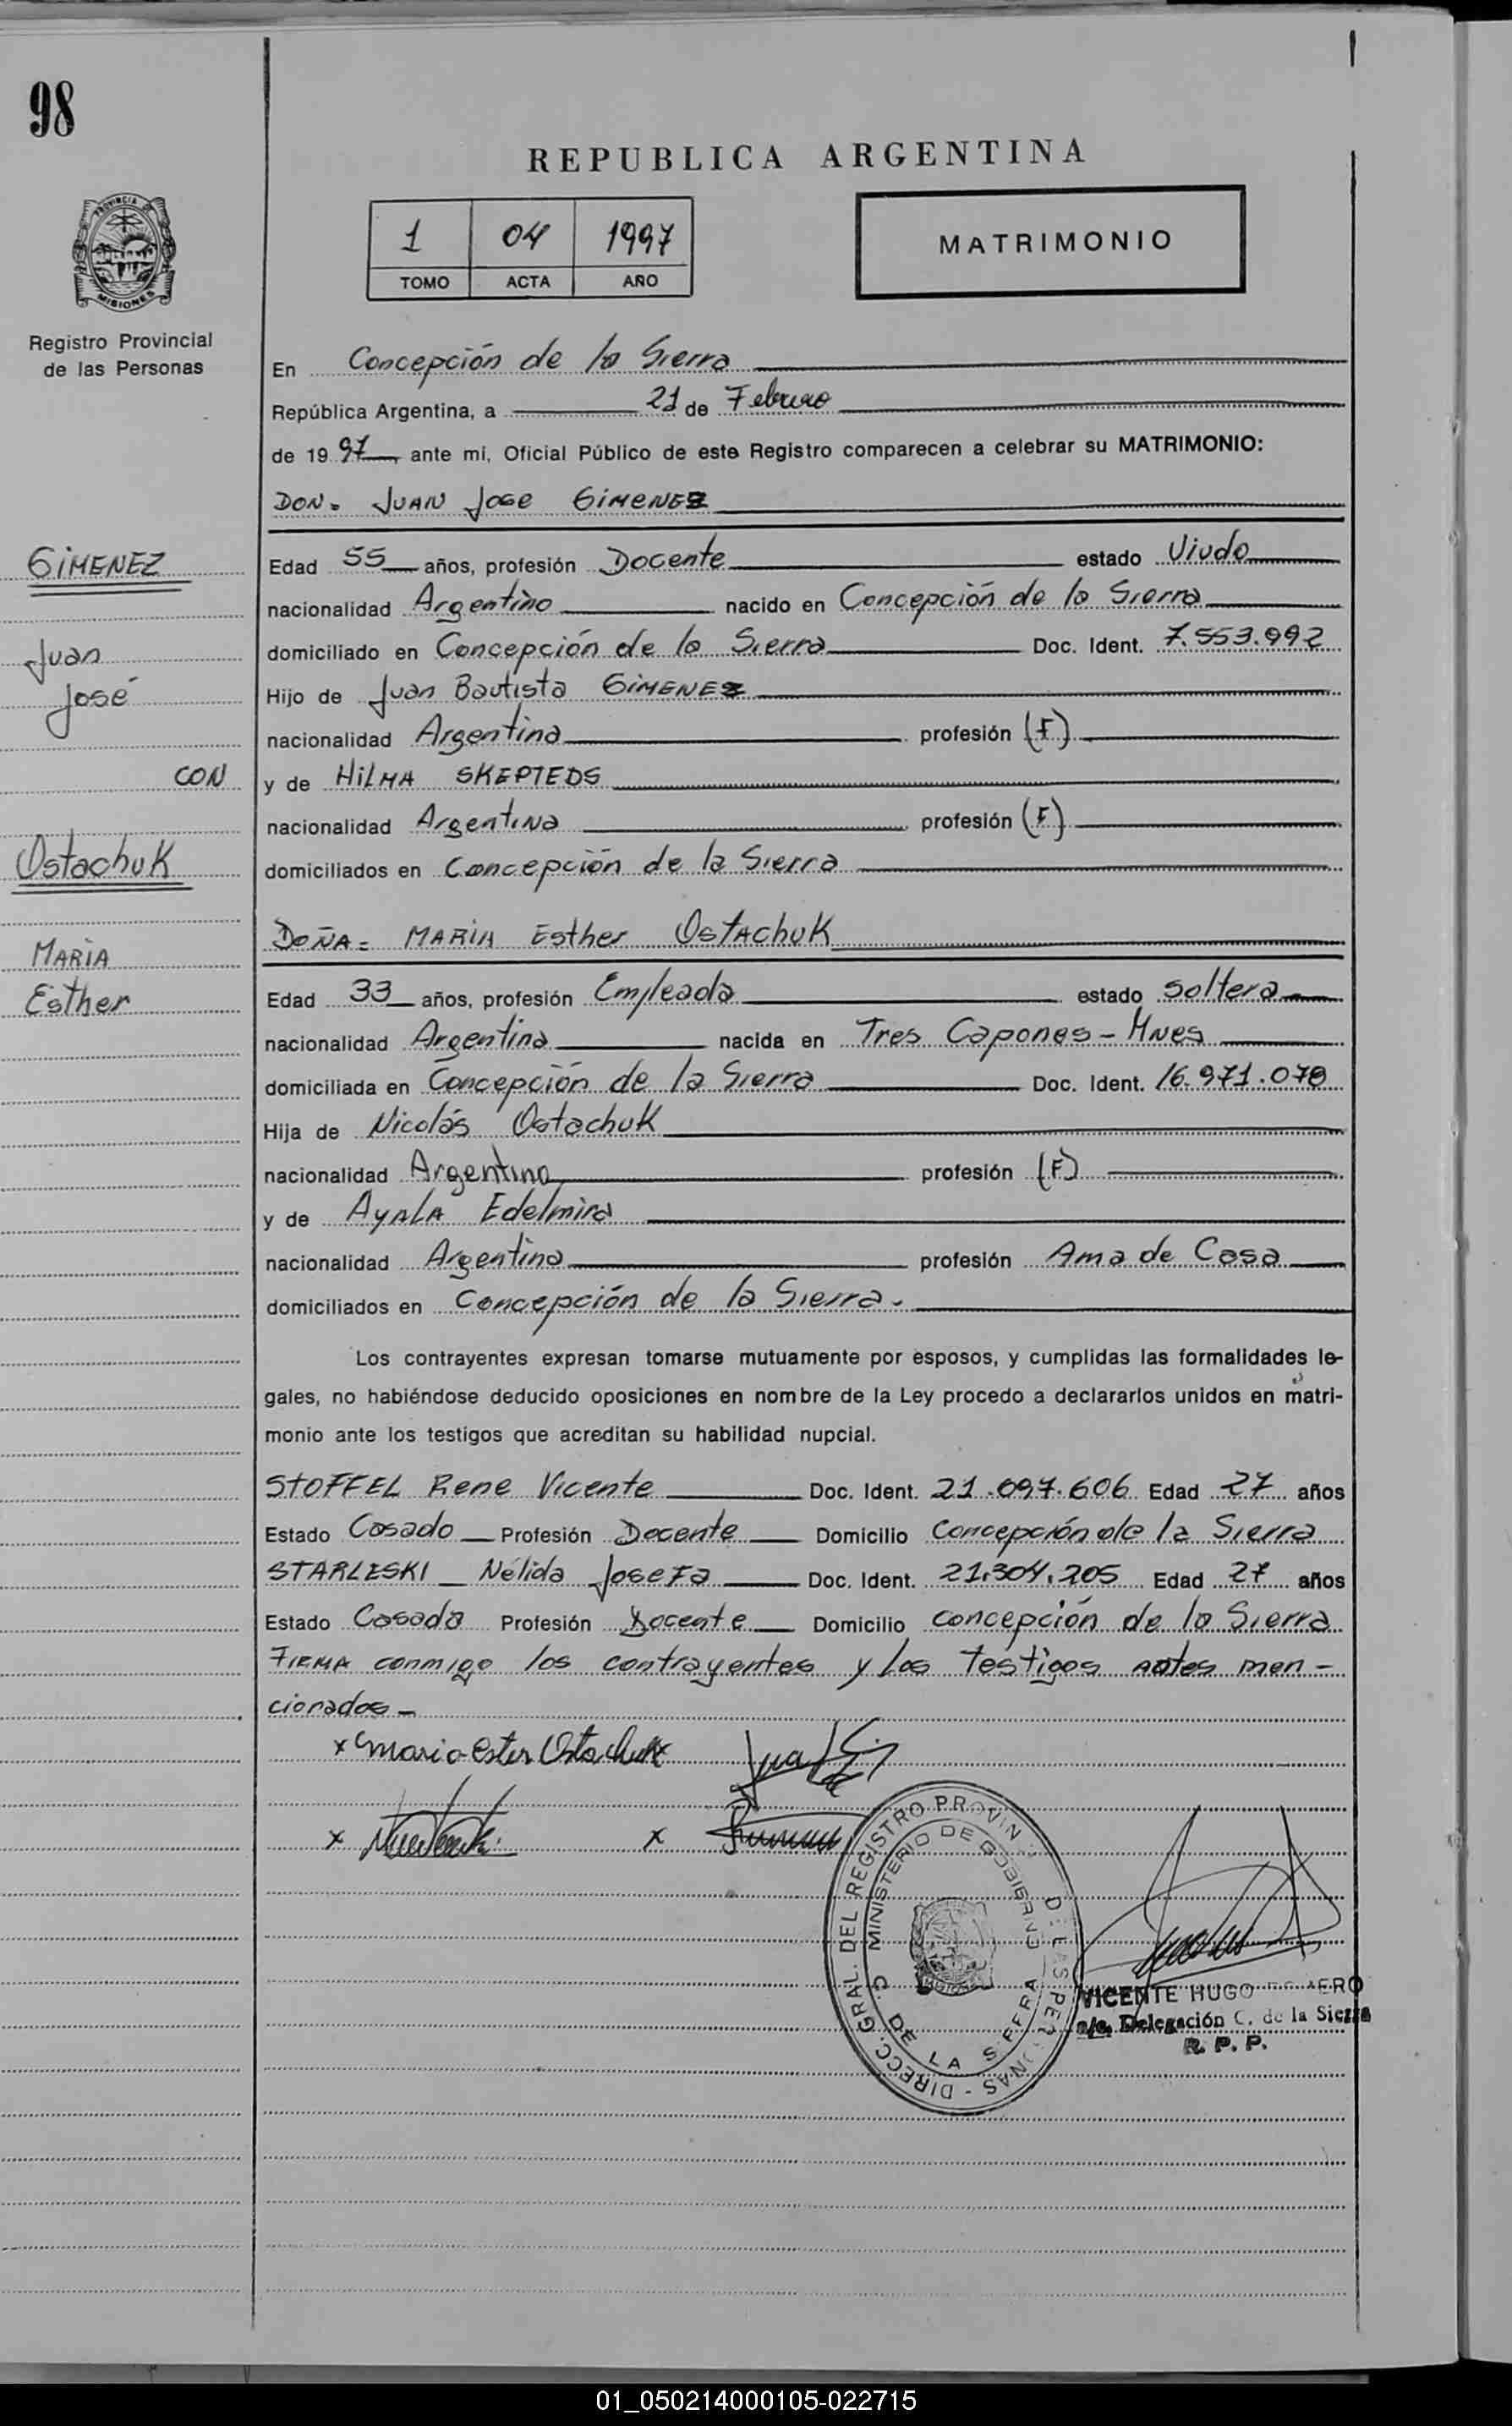 98
REPUBLICA ARGENTINA
1 04 1997
TOMO ACTA AÑO
MATRIMONIO
PROVINCIA DE
MISIONES
Registro Provincial
de las Personas
En Concepción de la Sierra
República Argentina, a 21 de Febrero
de 1997 ante mi, Oficial Público de este Registro comparecen a celebrar su MATRIMONIO:
DON= JUAN Jose GiMENEZ
GiMENEZ
Juan
José
CON
Ostachuk
MARiA
Esther
Edad 55 años, profesión Docente estado Viudo
nacionalidad Argentino nacido en Concepción de la Sierra
domiciliado en Concepción de la Sierra Doc. Ident. 7.553.992
Hijo de Juan Bautista GiMENEZ
nacionalidad Argentina profesión (F)
y de HiLMA SKEPTEDS
nacionalidad Argentina profesión (F)
domiciliados en Concepción de la Sierra
DOÑA= MARIA Esther OstAchuK
Edad 33 años, profesión Empleada estado soltera
nacionalidad Argentina nacida en Tres Capones - Mnes
domiciliada en Concepción de la Sierra Doc. Ident. 16.971.078
Hija de Nicolás Ostachuk
nacionalidad Argentina profesión (F)
y de AyALA Edelmira
nacionalidad Argentina profesión Ama de Casa
domiciliados en Concepción de la Sierra.
Los contrayentes expresan tomarse mutuamente por esposos, y cumplidas las formalidades le-
gales, no habiéndose deducido oposiciones en nombre de la Ley procedo a declararlos unidos en matri-
monio ante los testigos que acreditan su habilidad nupcial.
STOFFEL Rene Vicente Doc. Ident. 21.097.606 Edad 27 años
Estado Casado Profesión Docente Domicilio Concepción de la Sierra
STARLESKI Nélida JoseFa Doc. Ident. 21.304.205 Edad 27 años
Estado Casada Profesión Docente Domicilio concepción de la Sierra
FIRMA conmigo los contrayentes y los testigos antes men-
cionados -
x Maria Ester Ostachuk Jua
x x
DIRECC. GRAL. DEL REGISTRO PROVIN DE LAS PERSONAS -
MINISTERIO DE GOBIERNO
C. DE LA SIERRA
VICENTE HUGO
a/c. Delegación C. de la Sierra
R. P. P.
01_050214000105-022715